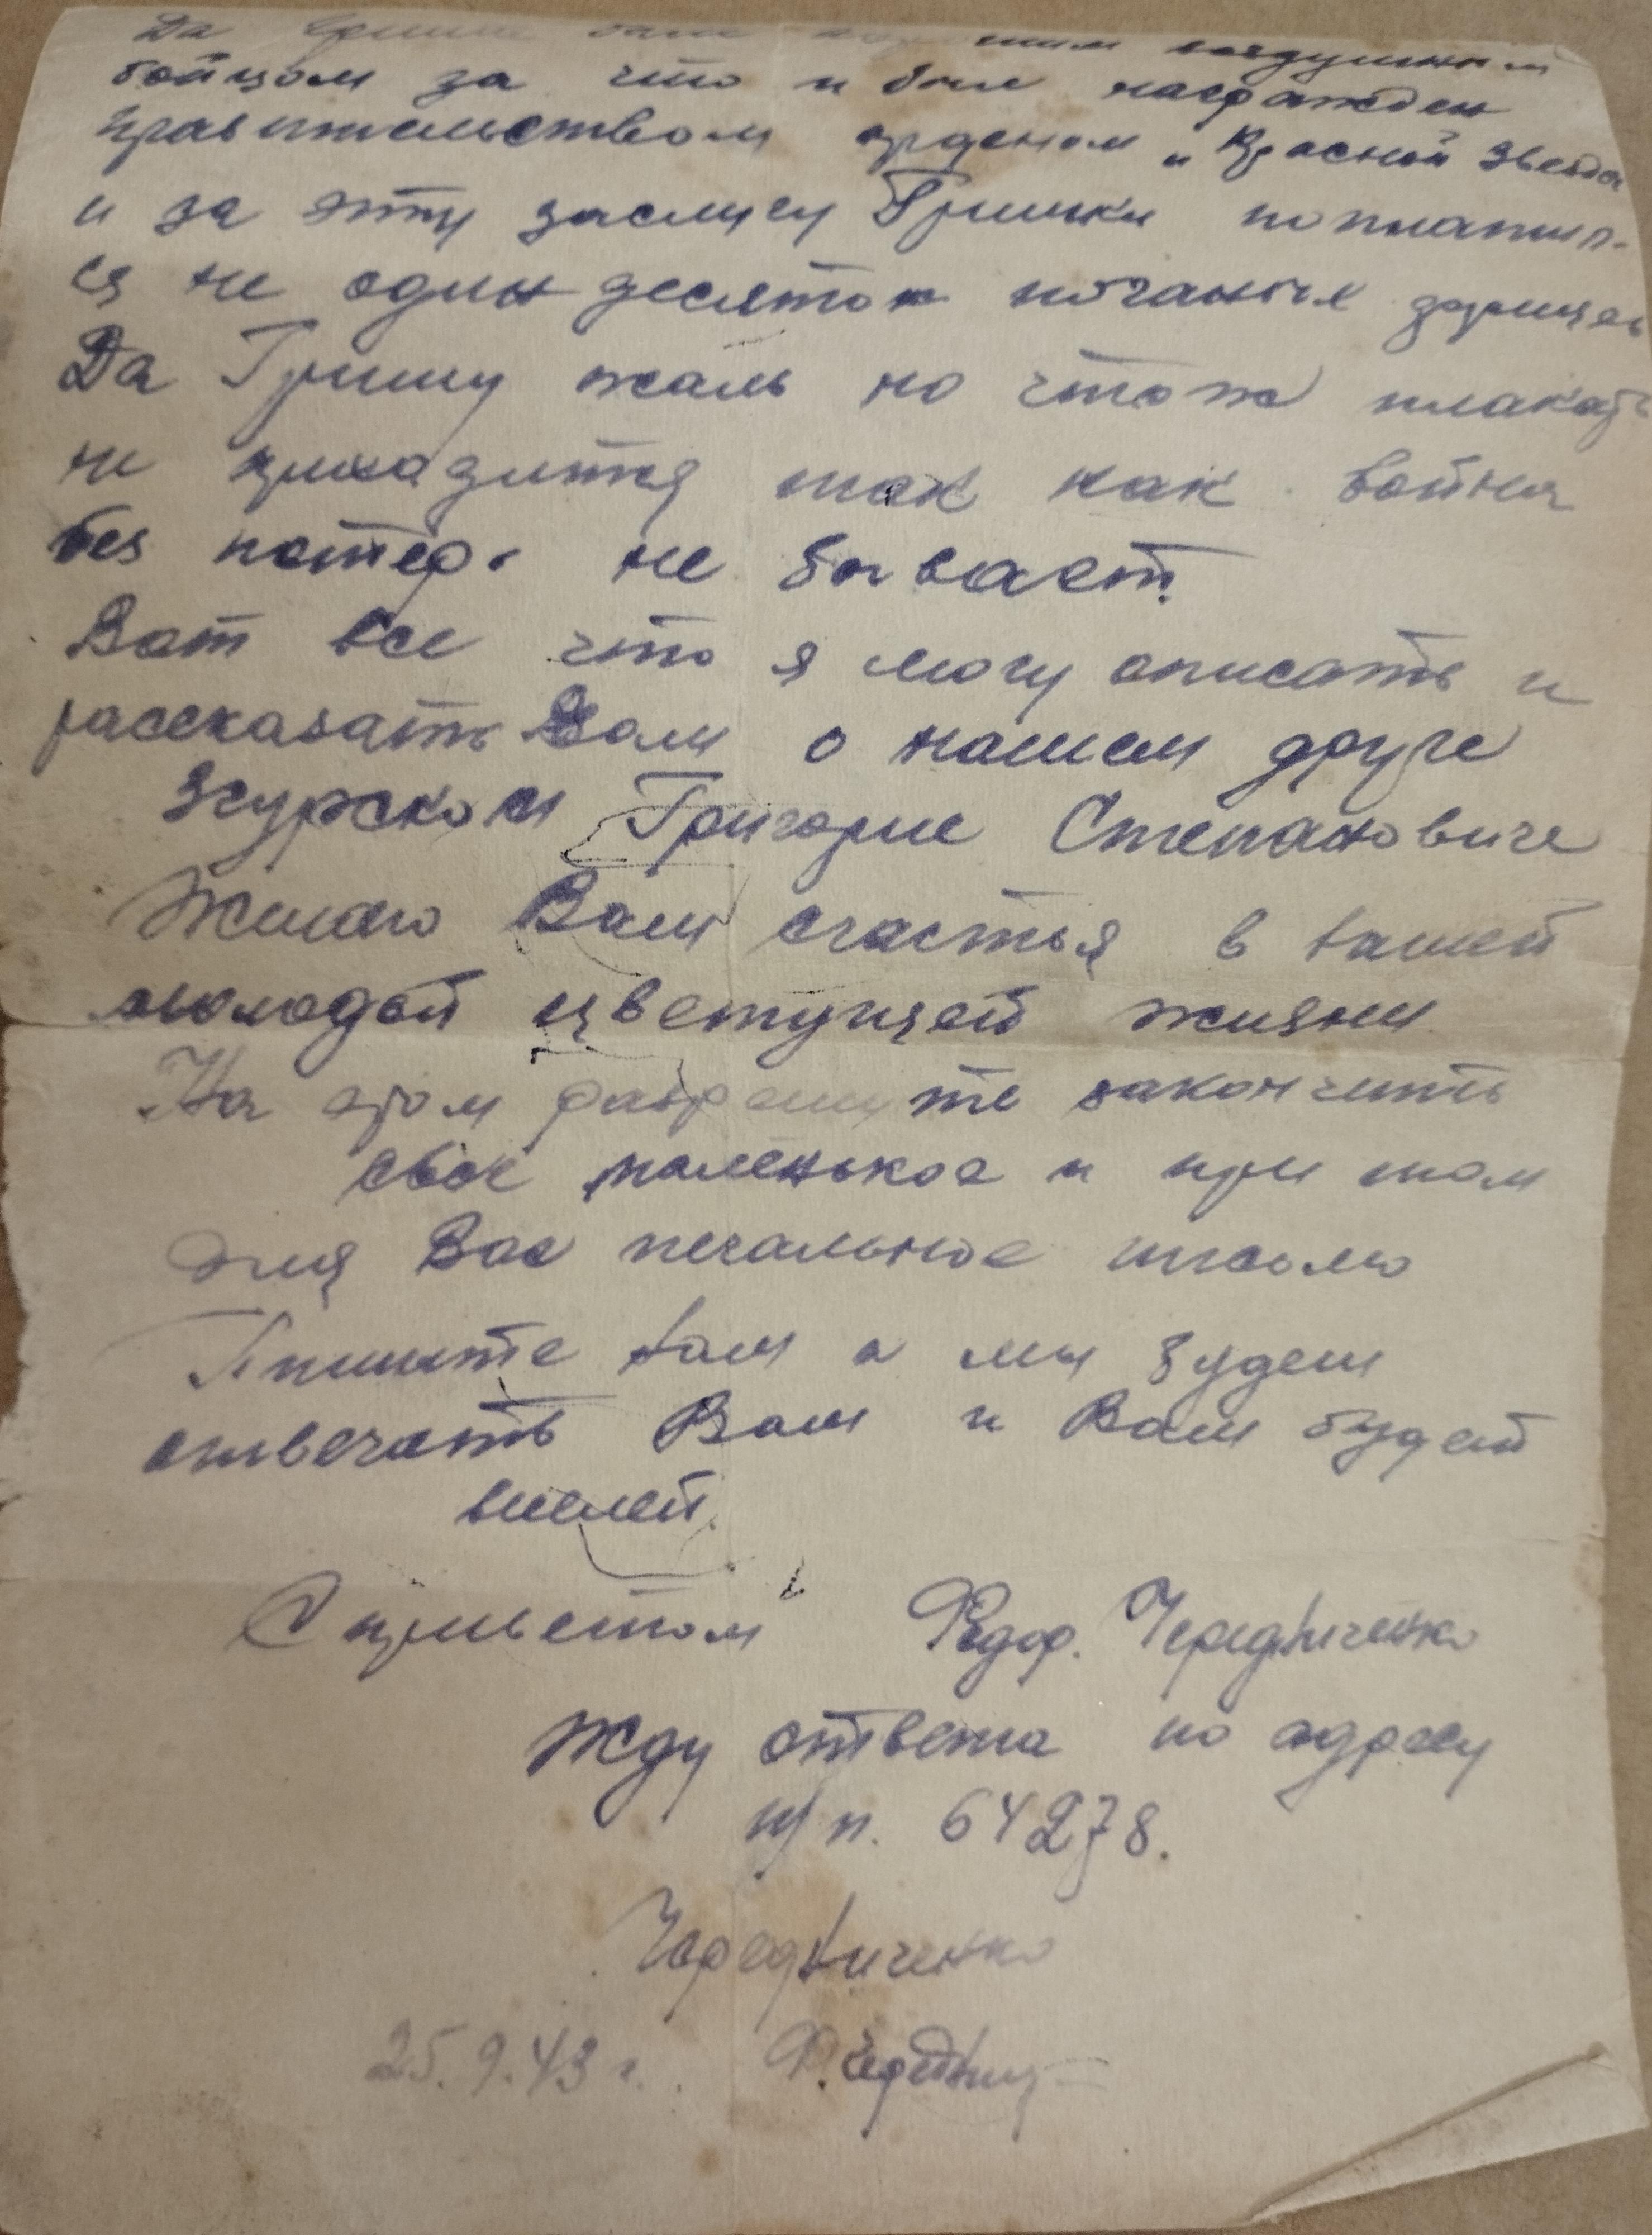 Да Гриша был воздушным
бойцом за что и был награжден
правительством орденом „Красной Звезды
и за эту заслугу Гришки поплатил-
ся не один десяток поганых
Да Гришу жаль но что ж плакать
не приходится так как война
без потерь не бывает.
Вот все что я могу описать и
рассказать Вам о нашем друге
Згурском Григорие Степановиче
Желаю Вам счастья в вашей
молодой цветущей жизни
На этом разрешите закончить
свое маленькое и при том
для Вас печальное письмо
Пишите нам а мы будем
отвечать Вам и Вам будет
веселей.
С приветом Федор. Чередниченко
Жду ответа по адресу
п/п. 64278.
Чередниченко
25.9.43 г. Ф.